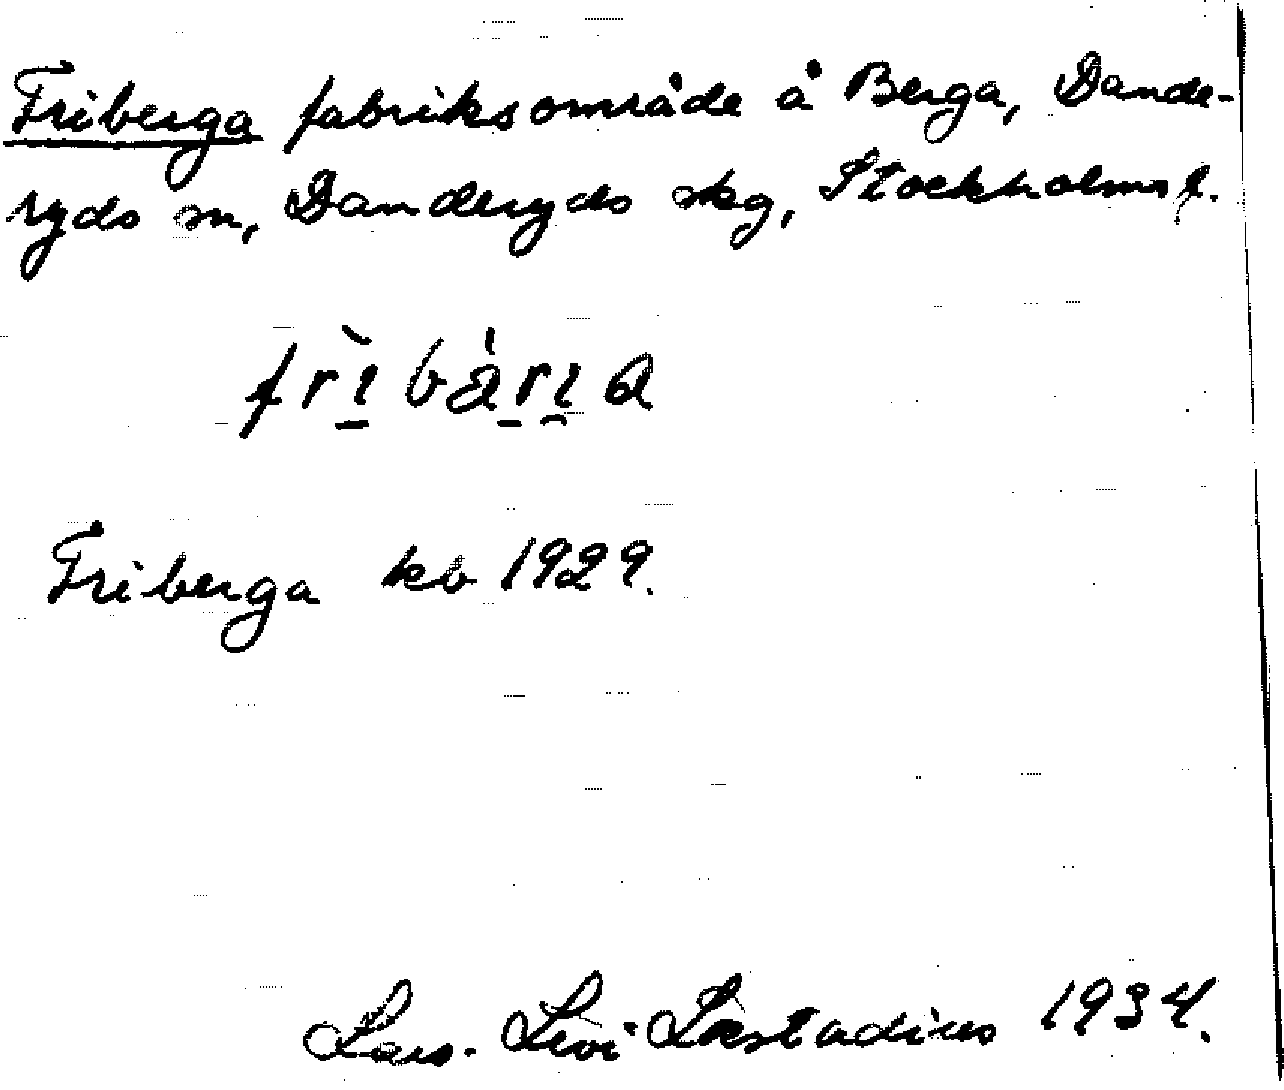 Friberga fabriksområde å Berga, Dande-
ryds sn, Danderyds skg, Stockholms l.
frìbä̀rıa
Friberga kb 1929.
Lars-Levi Læstadius 1934.